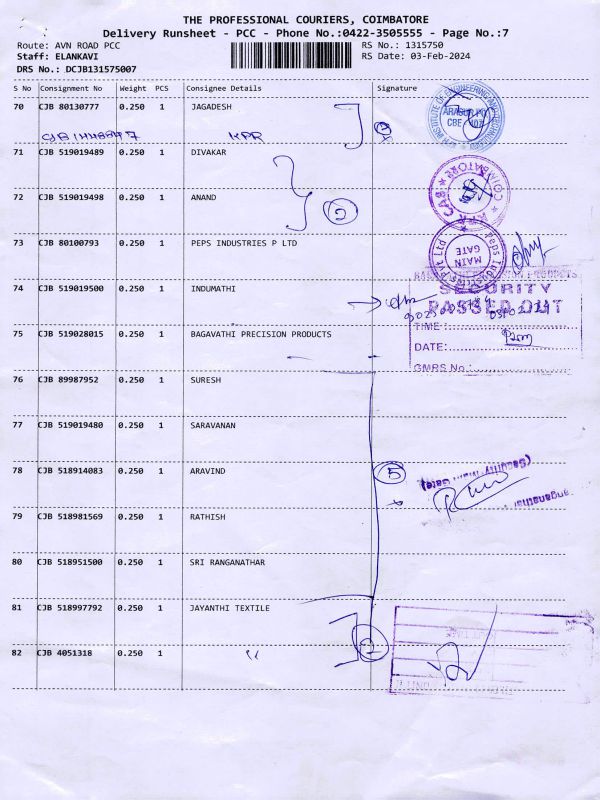 THE PROFESSIONAL COURIERS, COIMBATORE
Delivery Runsheet - PCC - Phone No.:0422-3505555 - Page No.:7
Route: AVN ROAD PCC
RS No.: 1315750
Staff: ELANKAVI
RS Date: 03-Feb-2024
DRS No.: DCJB131575007
S No Consignment No Weight PCS Consignee Details Signature
70 CJB 80130777 0.250 1 JAGADESH
KPR
71 CJB 519019489 0.250 1 DIVAKAR
72 CJB 519019498 0.250 1 ANAND
2
73 CJB 80100793 0.250 1 PEPS INDUSTRIES P LTD
MAIN GATE
74 CJB 519019500 0.250 1 INDUMATHI
SECURITY
PASSED OUT
TIME :
75 CJB 519028015 0.250 1 BAGAVATHI PRECISION PRODUCTS
DATE:
GMRS No.:
76 CJB 89987952 0.250 1 SURESH
77 CJB 519019480 0.250 1 SARAVANAN
78 CJB 518914083 0.250 1 ARAVIND
5
79 CJB 518981569 0.250 1 RATHISH
80 CJB 518951500 0.250 1 SRI RANGANATHAR
81 CJB 518997792 0.250 1 JAYANTHI TEXTILE
82 CJB 4051318 0.250 1 "